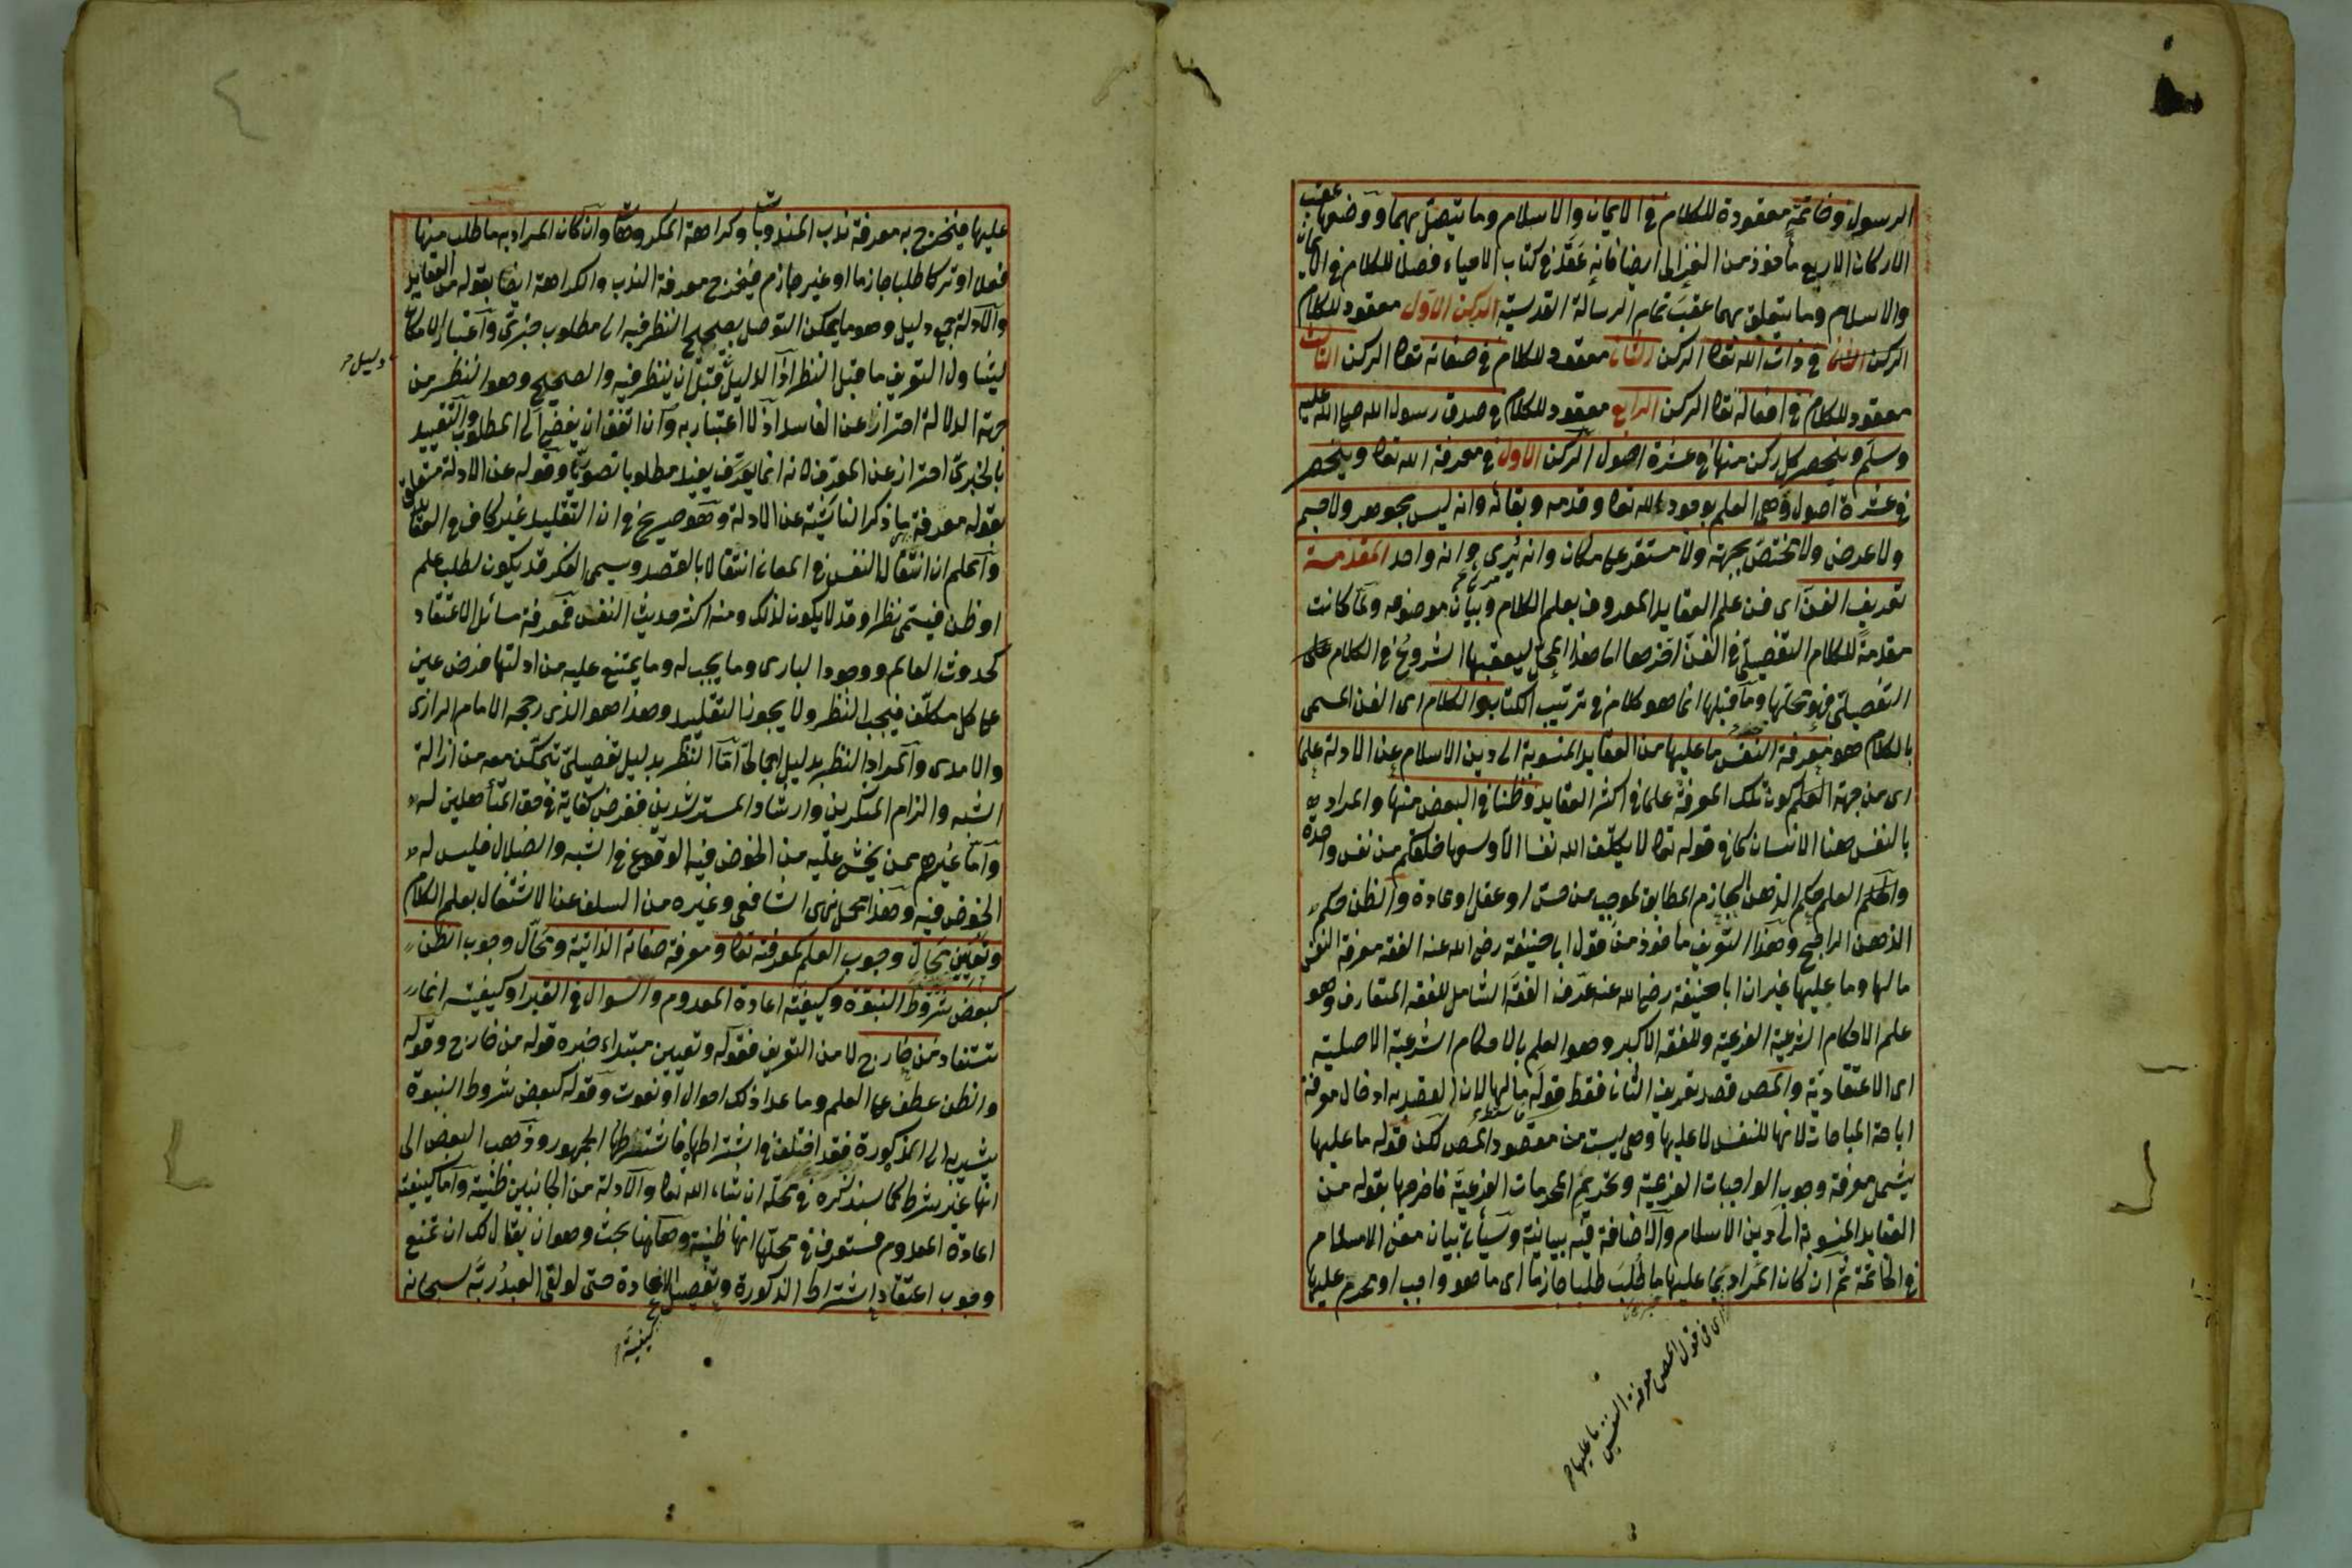 الرسول وخاتمة معقودة للكلام في الايمان والاسلام وما يتصل بهما ووضعها عقب
الاركان الاربع مأخوذ من الغزالى ايضا فانه عقد في كتاب الاحياء فصلا للكلام في الايمان
والاسلام وما يتعلق بهما عقب تمام الرسالة القدسية الركن الاول معقود للكلام
في ذات الله تعا الركن الثانى معقود للكلام في صفاته تعا الركن الثالث
معقود للكلام في افعاله تعا الركن الرابع معقود للكلام في صدق رسول الله صلى الله عليه
وسلم وينحصر كل ركن منها في عشرة اصول الركن الاول في معرفة الله تعا وينحصر
في عشرة اصول وهى العلم بوجود الله تعا وقدمه وبقائه وانه ليس بجوهر ولا جسم
ولا عرض ولا مختص بجهة ولا مستقر على مكان وانه يُرى وانه واحد المقدمة
تعريف الفن اى فن علم العقايد المعروف بعلم الكلام وبيان موضوعه ولما كانت
مقدمة للكلام التفصيلى في الفن اخرها الى هذا المحل ليعقبها الشروع في الكلام
التفصيلى فهو محلها وما قبلها انما هو كلام في ترتيب الكتاب والكلام اى الفن المسمى
بالكلام هو معرفة النفس ما عليها من العقايد المنسوبة الى دين الاسلام عن الادلة علما
اى من جهة العلم كون تلك المعرفة علما في اكثر العقايد وظنا في البعض منها والمراد
بالنفس هنا الانسان كما في قوله تعا لا يكلف الله نفسا الا وسعها خلقكم من نفس واحدة
والعلم حكم الذهن الجازم المطابق لموجب من حس او عقل او عادة والظن حكم
الذهن الراجح وهذا التعريف مأخوذ من قول ابى حنيفة رضى الله عنه الفقه معرفة النفس
ما لها وما عليها غير ان ابا حنيفة رضى الله عنه عرّف الفقه الشامل للفقه المتعارف وهو
علم الاحكام الشرعية الفرعية وللفقه الاكبر وهو العلم بالاحكام الشرعية الاصلية
اى الاعتقادية والمص قصد تعريف الثانى فقط قوله ما لها لان القصد به ادخال معرفة
اباحة المباحات لانها للنفس لا عليها وهى ليست من مقصود المص لكن قوله ما عليها
يشمل معرفة وجوب الواجبات الفرعية وتحريم المحرمات الفرعية فاخرجها بقوله من
العقايد المنسوبة الى دين الاسلام والاضافة فيه بيانية وسيأتى بيان معنى الاسلام
في الخاتمة ثم ان كان المراد بما عليها ما طُلب طلبا جازما اى ما هو واجب او محرم عليها
اى في قول المص معرفة النفس ما عليها
عليها فيخرج به معرفة ندب المندوبات وكراهة المكروهات وان كان المراد به ما طلب منها
فعلا او تركا طلبا جازما او غير جازم فيخرج معرفة الندب والكراهة ايضا بقوله من العقايد
والادلة جمع دليل وهو ما يمكن التوصل بصحيح النظر فيه الى مطلوب خبرى واعتبار الامكان
ليتناول التعريف ما قبل النظر اذ الدليل قبل ان ينظر فيه والصحيح وهو النظر من
دليل
جهة الدلالة احترازا عن الفاسد اذ لا اعتبار به وان اتفق ان يفضى الى المطلوب والتقييد
بالخبرى احتراز عن المعرف لانه انما يعرف يفيد مطلوبا تصوريا وقوله عن الادلة متعلق
بقوله معرفة ما ذكر الناشئة عن الادلة وهو صريح في ان التقليد غير كاف في العقايد
واعلم ان انتقال النفس في المعانى انتقالا بالقصد ويسمى الفكر قد يكون لطلب علم
او ظن فيسمى نظرا وقد لا يكون لذلك ومنه اكثر حديث النفس فمعرفة مسائل الاعتقاد
كحدوث العالم ووجود البارى وما يجب له وما يمتنع عليه من ادلتها فرض عين
على كل مكلف فيجب النظر ولا يجوز التقليد وهذا هو الذى رجحه الامام الرازى
والامدى والمراد النظر بدليل اجمالى اما النظر بدليل تفصيلى يتمكن معه من ازالة
الشبه والزام المنكرين وارشاد المسترشدين ففرض كفاية في حق المتأهلين له
واما غيرهم ممن يخشى عليه من الخوض فيه الوقوع في الشبه والضلال فليس له
الخوض فيه وهذا محل نهى الشافعى وغيره من السلف عن الاشتغال بعلم الكلام
وتعيين محالّ وجوب العلم لمعرفته تعا ومعرفة صفاته الذاتية ومحالّ وجوب الظن
كبعض شروط النبوة وكيفية اعادة المعدوم والسوال في القبر او كيفيته انما
تستفاد من خارج لا من التعريف فقوله وتعيين مبتداء خبره قوله من خارج وقوله
والظن عطف على العلم وما عدا ذلك احوال او نعوت وقوله كبعض شروط النبوة
يشير به الى الذكورة فقد اختلف في اشتراطها فاشترطها الجمهور وذهب البعض الى
انها غير شرط كما سنذكره في محله ان شاء الله تعا والادلة من الجانبين ظنية واما كيفية
اعادة المعدوم فستعرف في محلها انها ظنية وههنا بحث وهو ان يقال لك ان تمنع
وجوب اعتقاد اشتراط الذكورة وتفصيل الاعادة حتى لو لقى العبد ربه سبحانه
كيفية